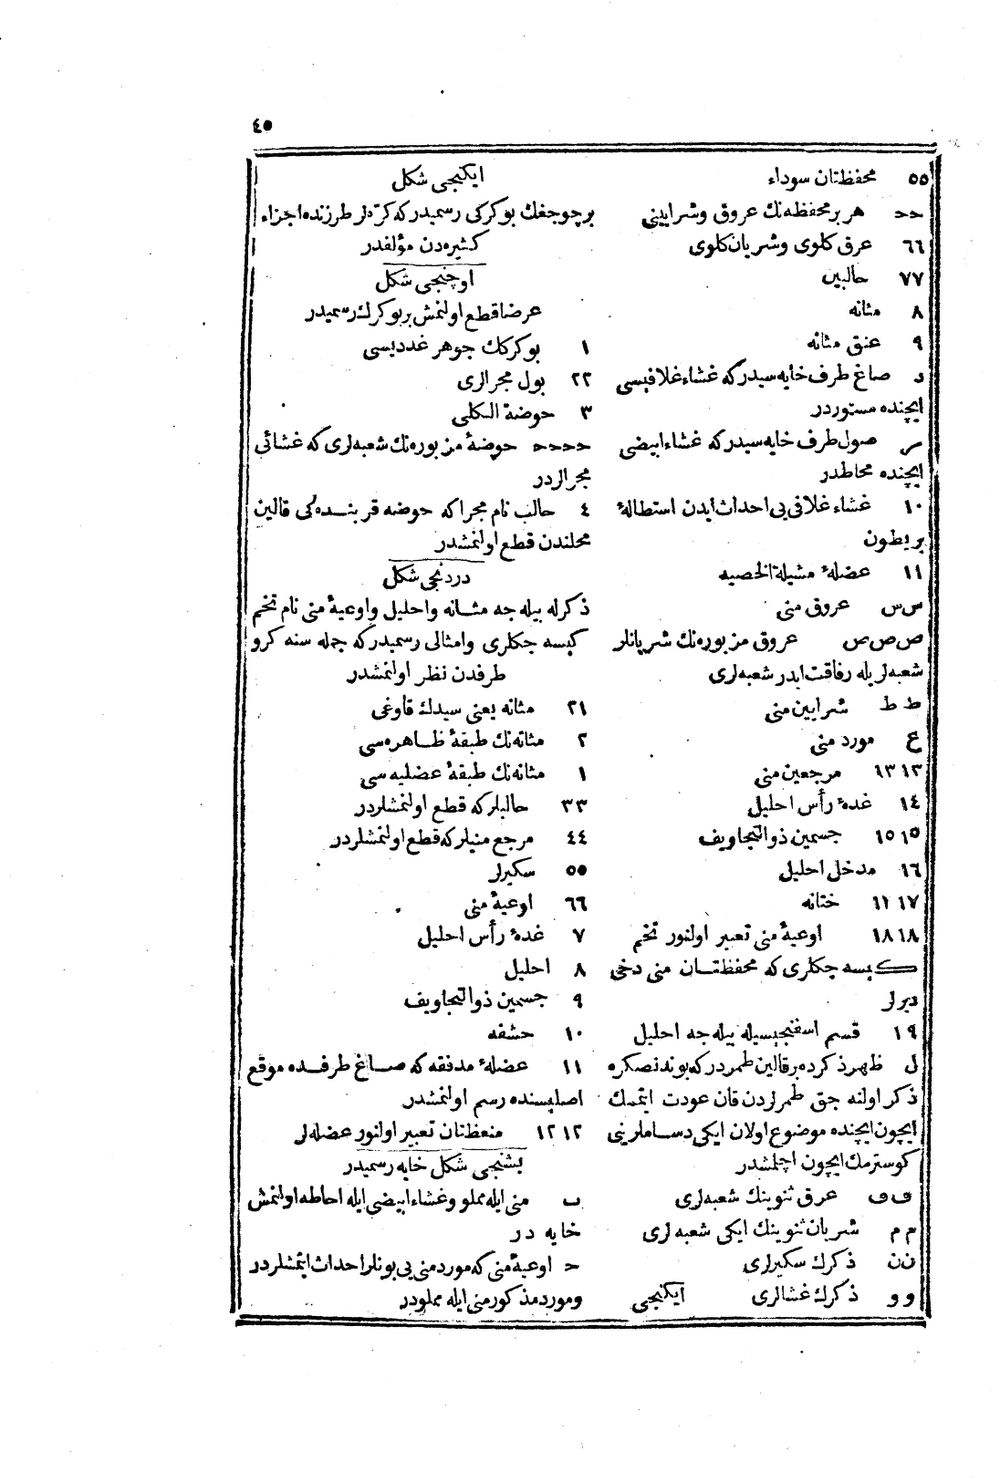 ٤٥
٥٥ محفظتان سوداء
حح هر بر محفظه‌نك عروق وشرايينى
٦٦ عرق كلوى وشريان كلوى
٧٧ حالبين
٨ مثانه
٩ عنق مثانه
د صاغ طرف خايه سيدر كه غشاء غلافيسى
ايچنده مستوردر
ر صول طرف خايه سيدر كه غشاء ابيضى
ايچنده محاطدر
١٠ غشاء غلافى يى احداث ايدن استطالۀ
بريطون
١١ عضلۀ مشيلة الخصيه
س س عروق منى
ص ص ص عروق مزبوره‌نك شريانلر
شعبه‌لريله رفاقت ايدر شعبه‌لرى
ط ط شرايين منى
ع مورد منى
١٣١٣ مرجعين منى
١٤ غدۀ رأس احليل
١٥١٥ جسمين ذو التجاويف
١٦ مدخل احليل
١٧ ١٧ ختانه
١٨١٨ اوعيۀ منى تعبير اولنور تخم
كيسه جكلرى كه محفظتان منى دخى
ديرلر
١٩ قسم اسفنجيسيله بيله جه احليل
ل ظهر ذكرده بر قالين طمردر كه بوندنصكره
ذكر اولنه جق طمرلردن قان عودت ايتمسك
ايچون ايچنده موضوع اولان ايكى دساملرينى
كوسترمك ايچون اچلمشدر
ف ف عرق ثنوينك شعبه‌لرى
م م شريان ثنوينك ايكى شعبه‌لرى
ن ن ذكرك سكيرلرى
و و ذكرك غشالرى ايكنجى
ايكنجى شكل
بر چوجغك بوكركى رسميدر كه كرتلر طرزنده اجزاء
كثيره‌دن مؤلفدر
اوچنجى شكل
عرضا قطع اولنمش بر بوكرك رسميدر
١ بوكركك جوهر غدديسى
٢٢ بول مجرالرى
٣ حوضة الكلى
حححح حوضۀ مزبوره‌نك شعبه‌لرى كه غشائى
مجرالردر
٤ حالب نام مجرا كه حوضه قربنده‌كى قالين
محلندن قطع اولنمشدر
دردنجى شكل
ذكرله بيله جه مثانه واحليل واوعيۀ منى نام تخم
كيسه جكلرى وامثالى رسميدر كه جمله سنه كرو
طرفدن نظر اولنمشدر
٢١ مثانه يعنى سيدك قاوغى
٢ مثانه‌نك طبقۀ ظاهره‌سى
١ مثانه‌نك طبقۀ عضليه‌سى
٣٣ حالبلر كه قطع اولنمشلردر
٤٤ مرجع منيلر كه قطع اولنمشلردر
٥٥ سكيرلر
٦٦ اوعيۀ منى
٧ غدۀ رأس احليل
٨ احليل
٩ جسمين ذو التجاويف
١٠ حشفه
١١ عضلۀ مدفقه كه صاغ طرفده موقع
اصليسنده رسم اولنمشدر
١٢١٢ منعظتان تعبير اولنور عضله‌لر
بشنجى شكل خايه رسميدر
ب منى ايله مملو وغشاء ابيضى ايله احاطه اولنمش
خايه در
ح اوعيۀ منى كه مورد منى يى بونلر احداث ايتمشلردر
ومورد مذكور منى ايله مملودر